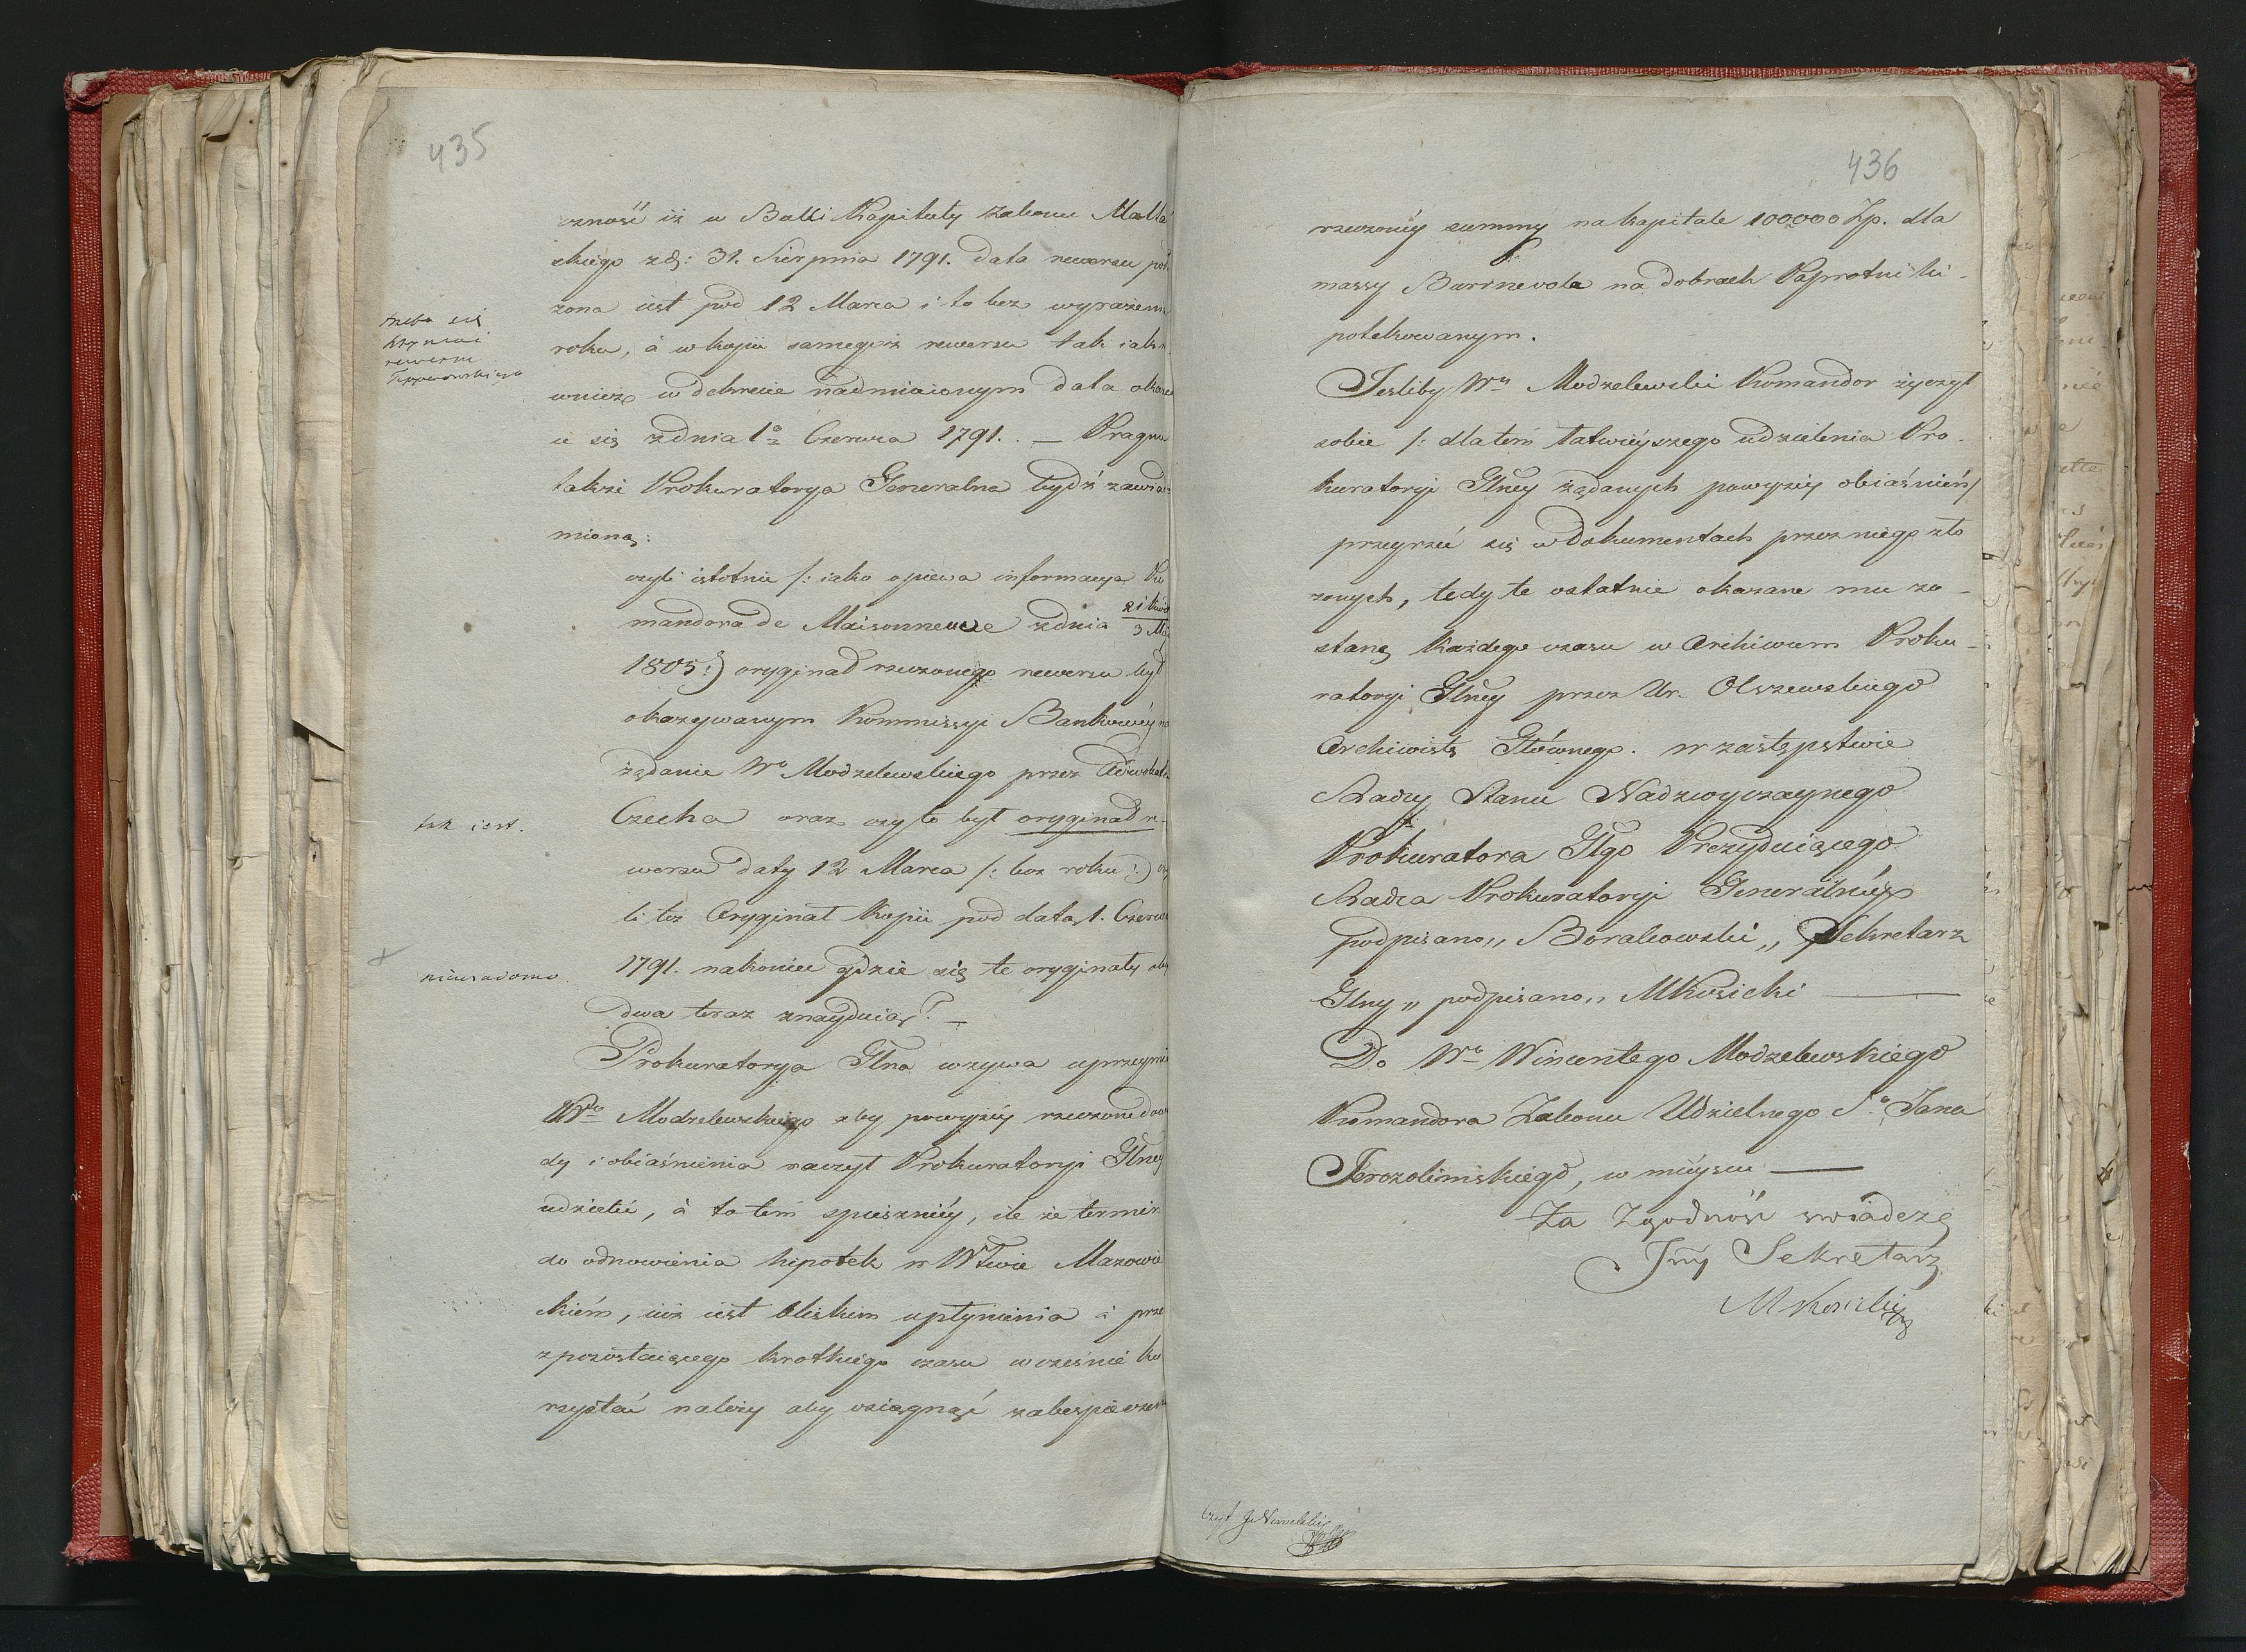 435
czność iż w Bulli Kapituły Zakonu Malta
skiego z d: 31. Sierpnia 1791. data rewersu poło
żona iest pod 12 Marca i to bez wyrażenia
roku, à w kopii samegoż rewersu tak iak
wnież w dekrecie nadmienionym data okazu
ie się z dnia 1o Czerwca 1791. — Pragnie
także Prokuratorya Generalna bydź zawiado
mioną:
czyli istotnie /: iako opiewa informacya Ko
mandora de Maisonneuve z dnia 21 Kwie / 3 Ma
1805 :) oryginał rzeczonego rewersu był
okazywanym Kommissyi Bankowéy na
żądanie Wo Modzelewskiego przez Adwokata
Czecha oraz czy to był oryginał re-
wersu daty 12 Marca /: bez roku :) czy
li też Oryginał Kopii pod datą 1. Czerwca
1791. nakoniec gdzie się te oryginały oby
dwa teraz znayduią? —
Prokuratorya Glna wzywa uprzeymie
Wgo Modzelewskiego aby powyżéy rzeczone dowo
dy i obiaśnienia raczył Prokuratoryi Glney
udzielić, à to tém spieszniéy, ile że termin
do odnowienia hipotek w Wtwie Mazowie
ckiém, iuż iest bliskim upłynienia i prze
z pozostaiącego krotkiego czasu wcześnie ko
rzystać należy aby osiągnąć zabespieczenie
trzeba się
rewersu
tak iest.
niewiadomo.
436
rzeczonéy summy na kapitale 100000 Zp. dla
massy Burrnevola na dobrach Paprotni hi-
potekowanym.
Jesliby Wy Modzelewski Komandor życzył
sobie /: dla tém łatwiéyszego udzielenia Pro-
kuratoryi Glney żądanych powyżéy obiaśnień/
przeyrzéć się w dokumentach przez niego zło
żonych, tedy te ostatnie okazane mu zo-
staną każdego czasu w Archiwum Proku-
ratoryi Glney przez Ur. Olszewskiego
Archiwistę Głównego. w zastępstwie
Radcy Stanu Nadzwyczaynego
Prokuratora Glgo Prezyduiącego
Radca Prokuratoryi Generalnéy
podpisano „ Borakowski „ Sekretarz
Glny „ podpisano „ MKosicki —
Do Wo Wincentego Modzelewskiego
Komandora Zakonu Udzielnego So Jana
Jerozolimskiego, w mieyscu —
Za Zgodność swiadczę
Jny Sekretarz
MKosicki